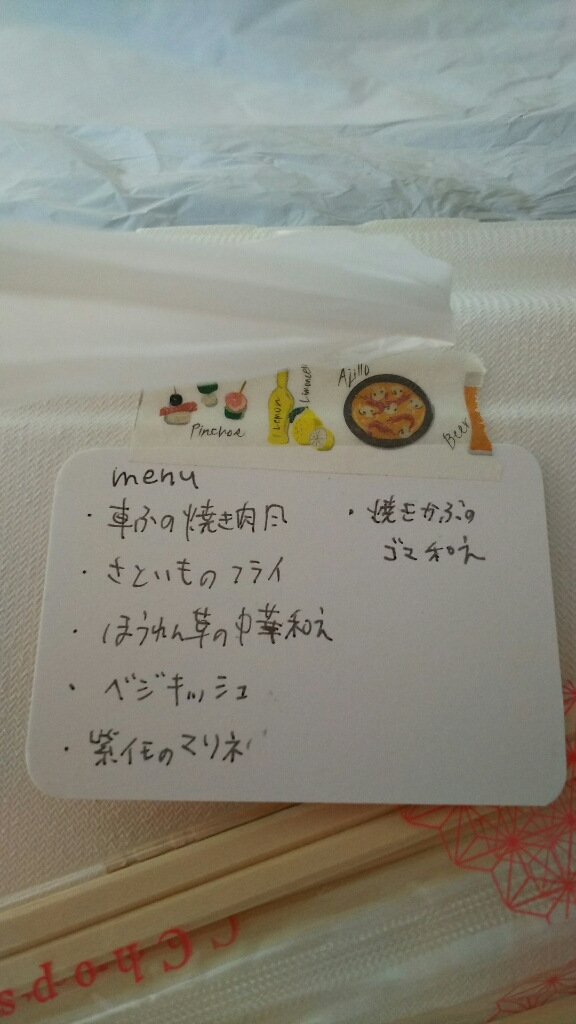 Pinchos
Lemon
Limoncello
Ajillo
Beer
menu
・車ふの焼き肉風
・さといものフライ
・ほうれん草の中華和え
・ベジキッシュ
・紫イモのマリネ
・焼きかぶの
ゴマ和え
Chops